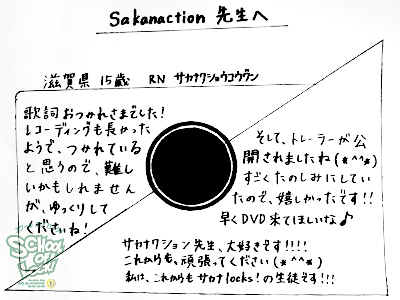 Sakanaction 先生へ
滋賀県 15歳 RN サカナクショウコウグン
歌詞おつかれさまでした!
レコーディングも長かった
ようで、つかれている
と思うので、難し
いかもしれません
が、ゆっくりして
くださいね!
そして、トレーラーが公
開されましたね(*^^*)
すごくたのしみにしてい
たので、嬉しかったです!!
早くDVD来てほしいな♪
サカナクション先生、大好きです!!!!
これからも、頑張ってください(*^^*)
私は、これからもサカナlocks!の生徒です!!!
SCHOOL
OF LOCK!